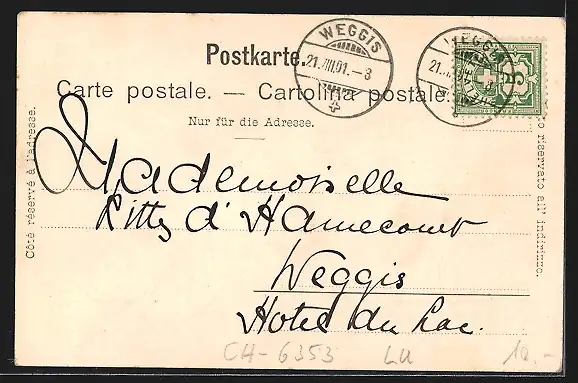 Postkarte.
WEGGIS
21.VIII.01.-8
WEGGIS
Carte postale. — Cartolina postale.
Nur für die Adresse.
Côté réservé à l'adresse.
riservato all' indirizzo.
Mademoiselle
Kitty d'Hamecourt
Weggis
Hotel du Lac.
CH-6353 LU 10.-